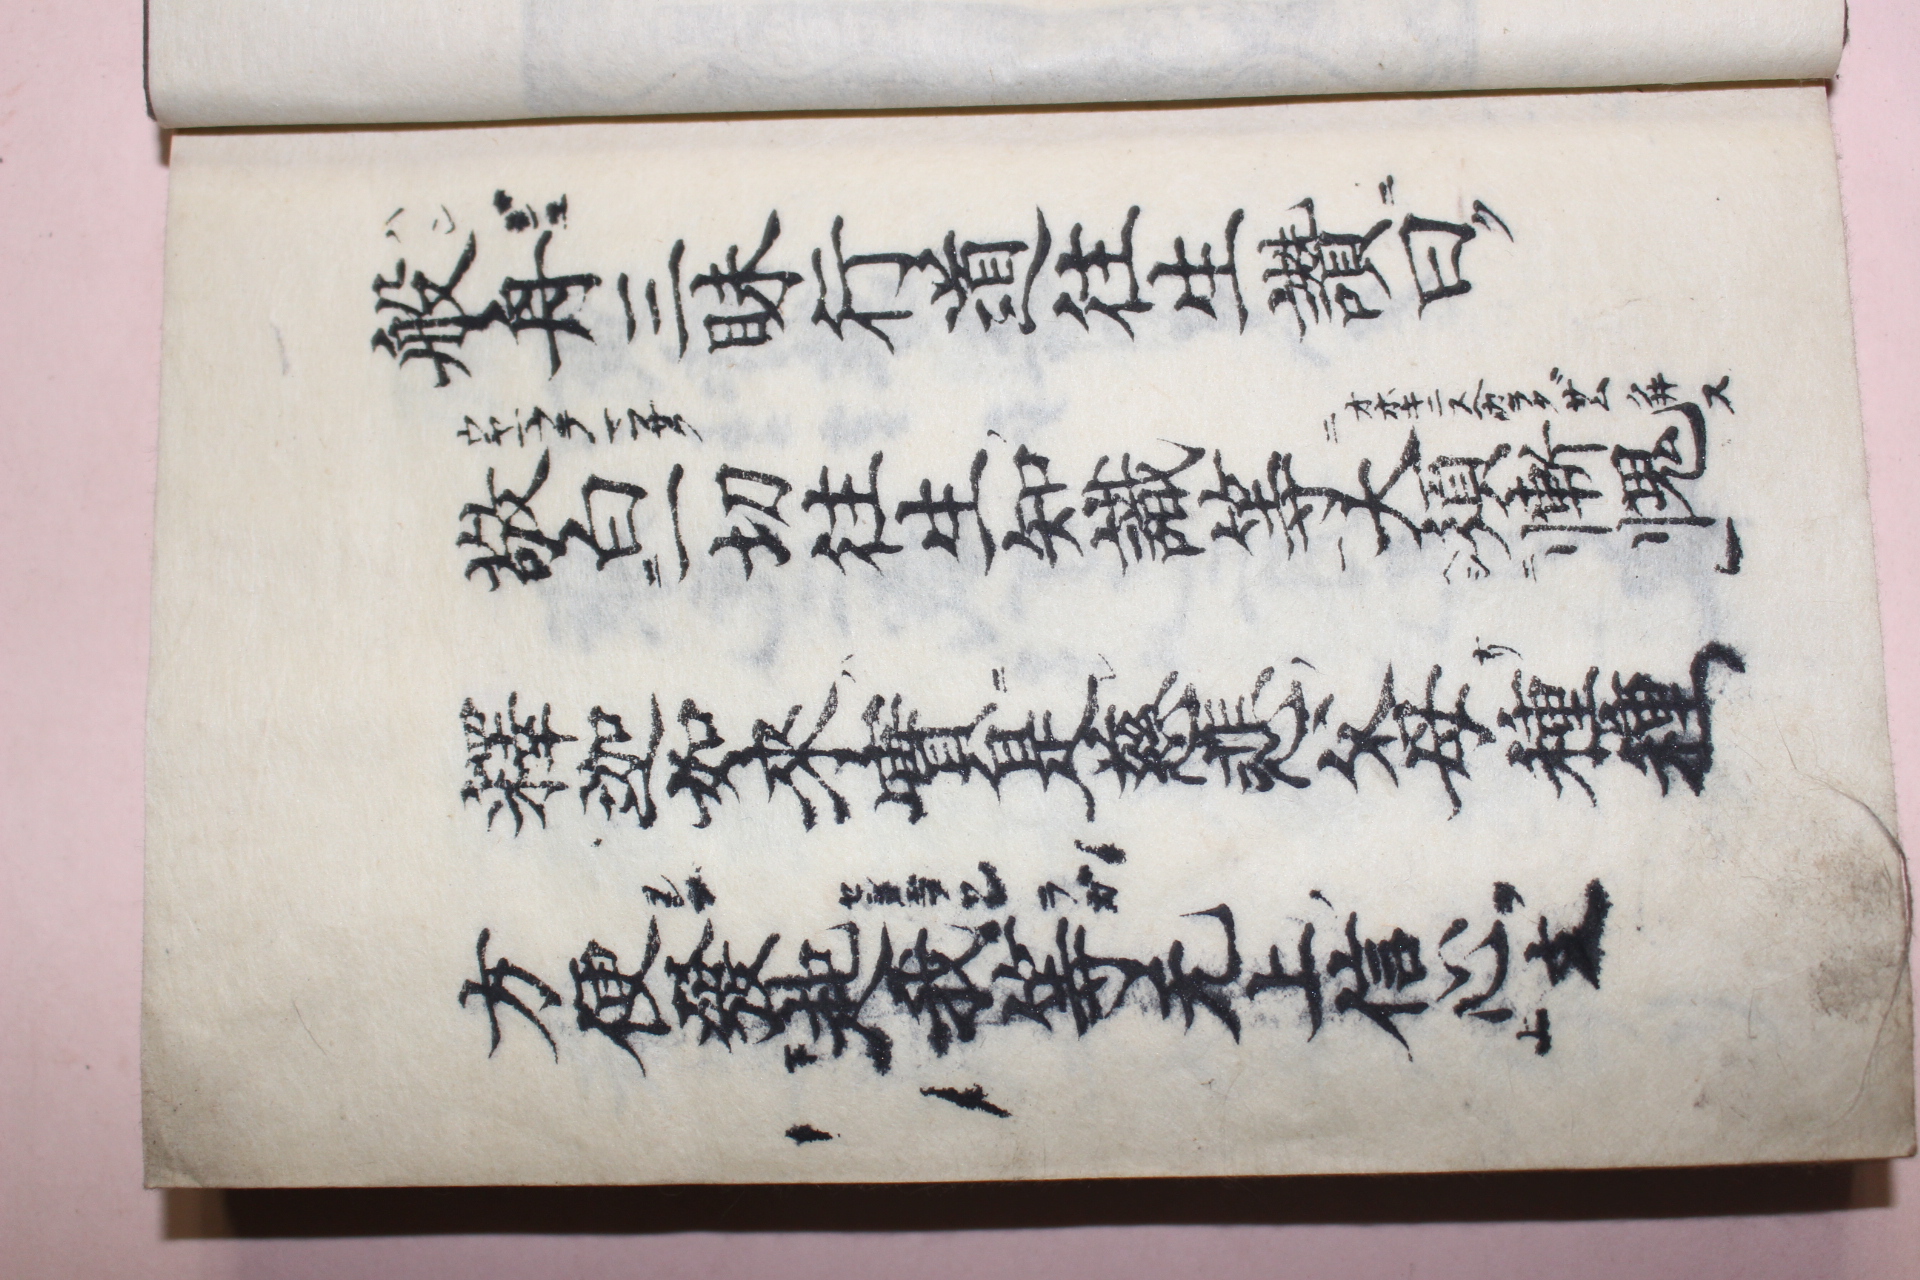 般舟三昧行道往生讚曰
敬白一切往生知識等大須慚愧
釋迦如來實是慈悲父母種種
方便發起我等无上信心文